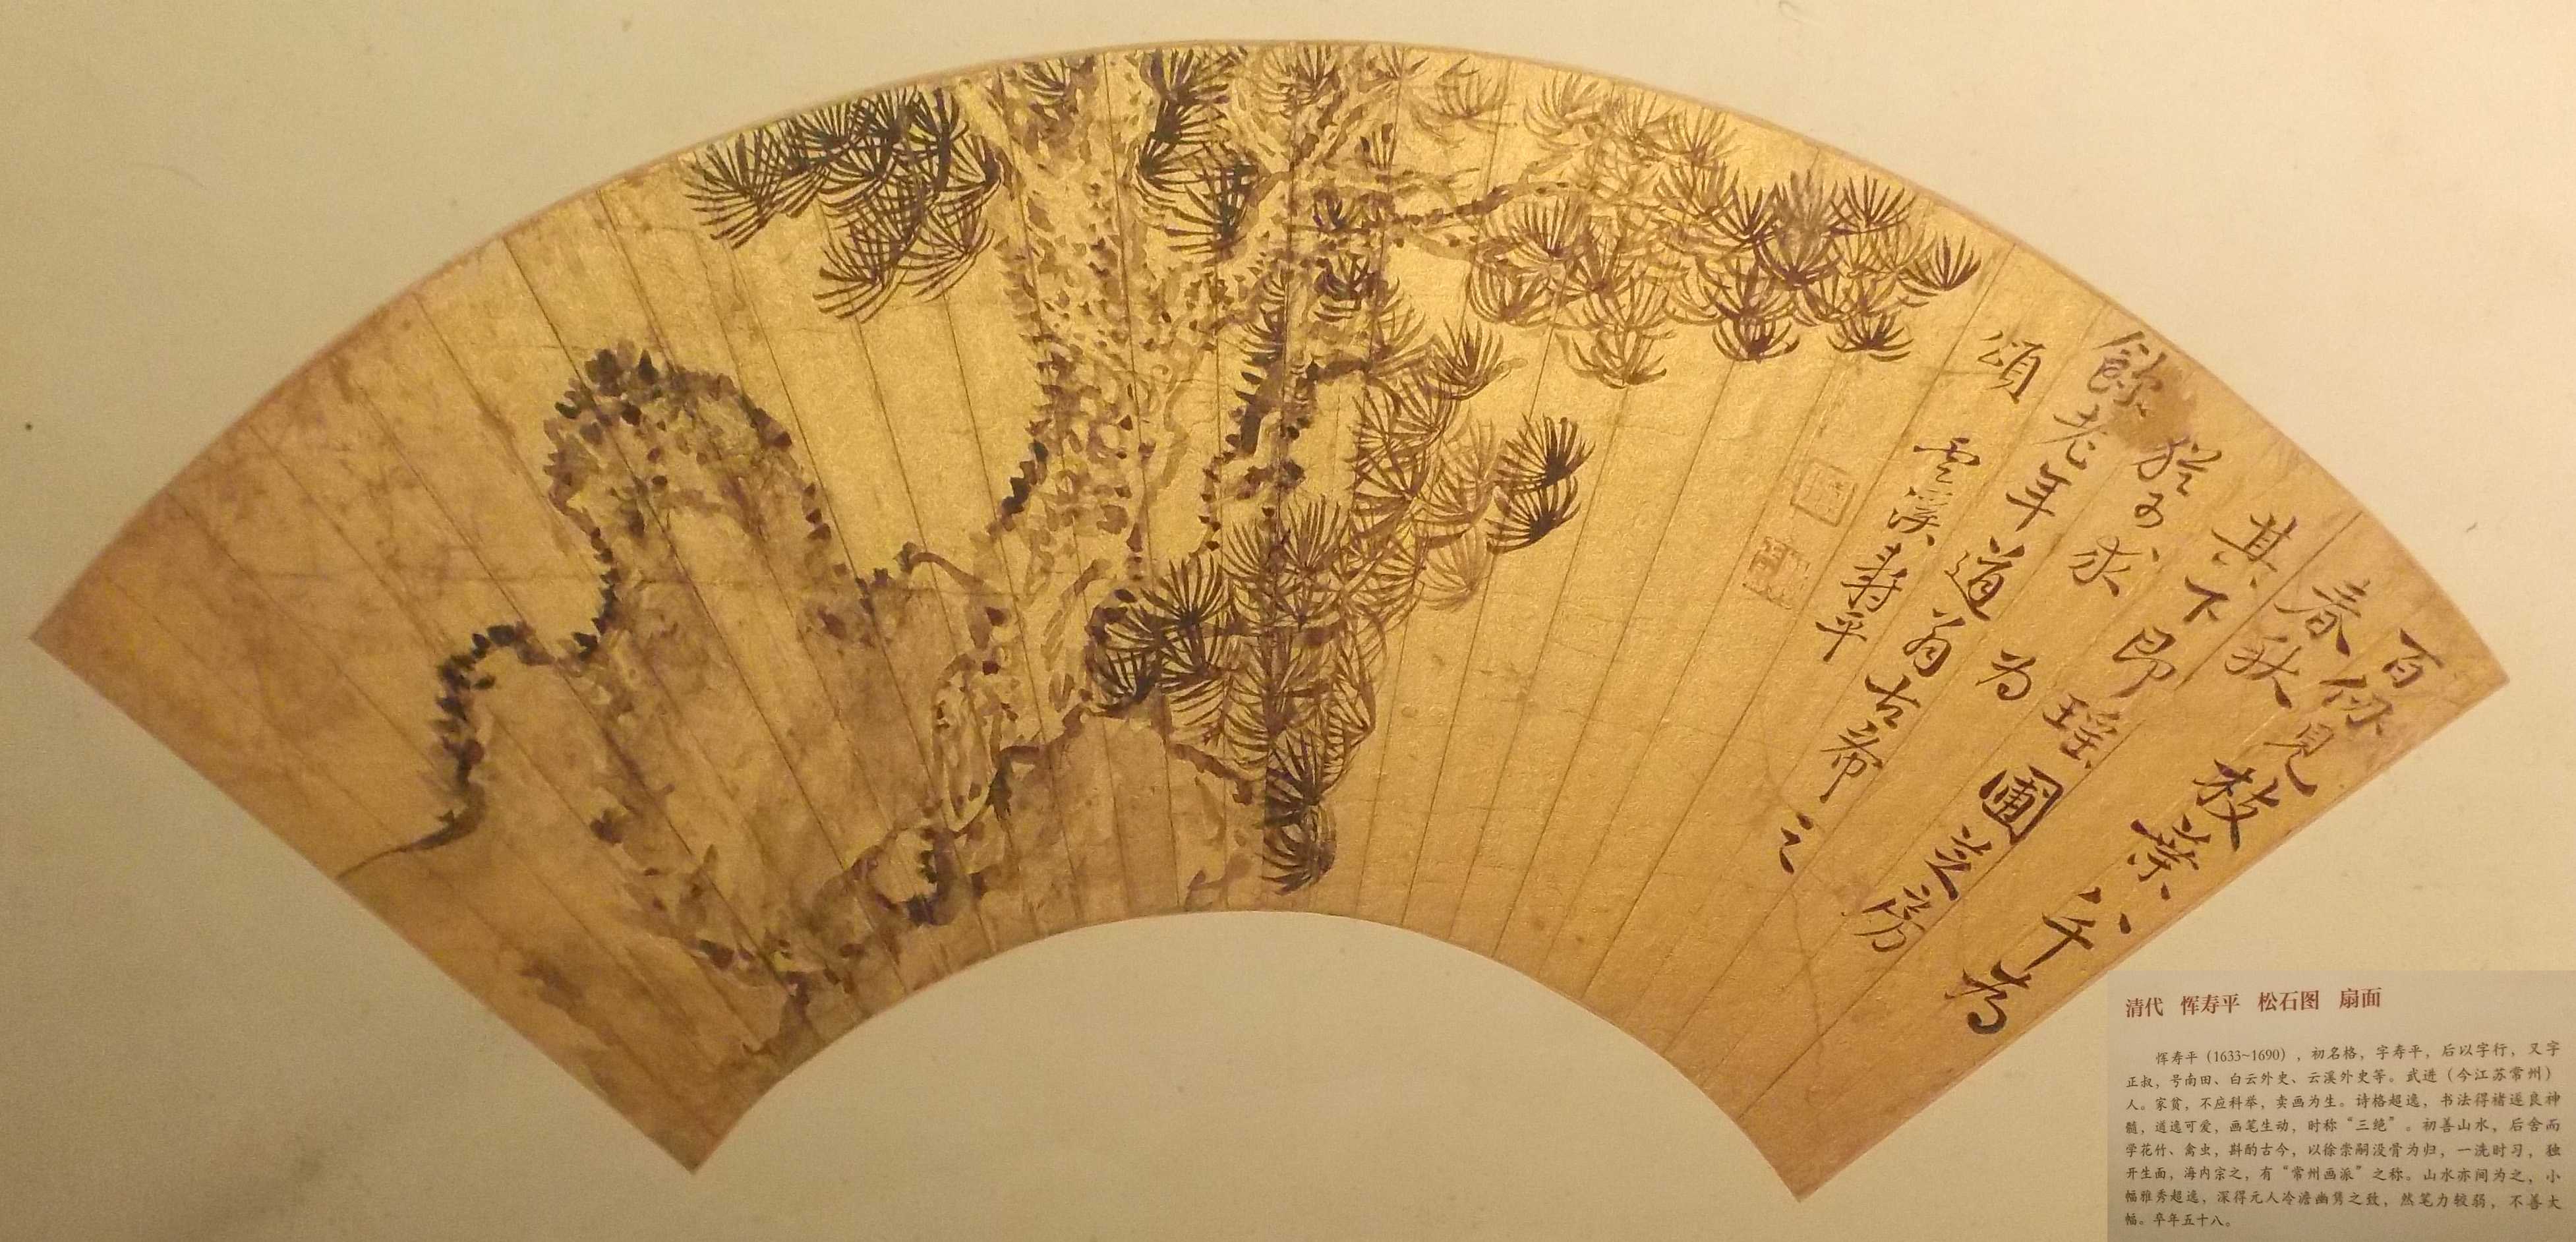 百仞見枝葉八千為
春秋
其下即瑤圃芝房
猶可求　為
餘老年道翁古希之
頌
雲溪壽平
清代　恽寿平　松石图　扇面
恽寿平（1633~1690），初名格，字寿平，后以字行，又字
正叔，号南田、白云外史、云溪外史等。武进（今江苏常州）
人。家贫，不应科举，卖画为生。诗格超逸，书法得褚遂良神
髓，遒逸可爱，画笔生动，时称“三绝”。初善山水，后舍而
学花竹、禽虫，斟酌古今，以徐崇嗣没骨为归，一洗时习，独
开生面，海内宗之，有“常州画派”之称。山水亦间为之，小
幅雅秀超逸，深得元人冷澹幽隽之致，然笔力较弱，不善大
幅。卒年五十八。